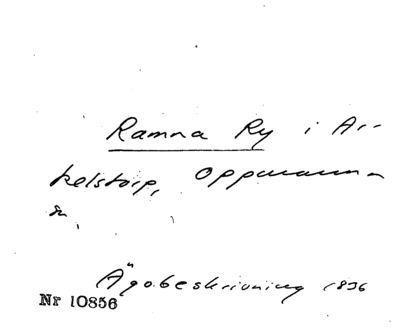 Ramna Ry i Ar-
kelstorp, Oppmanna
sn,
Ägobeskrivning 1836
Nr 10856